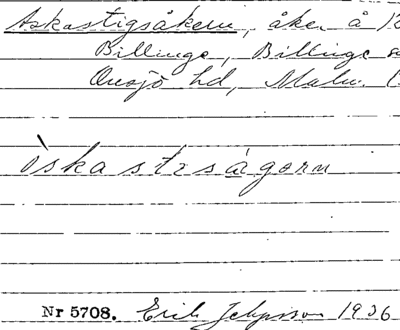 Askastigsåkern, åker å 12
Billinge, Billinge s
Onsjö hd, Malm.
ìskastısågorn
Nr 5708. Erik Jeppsson 1936